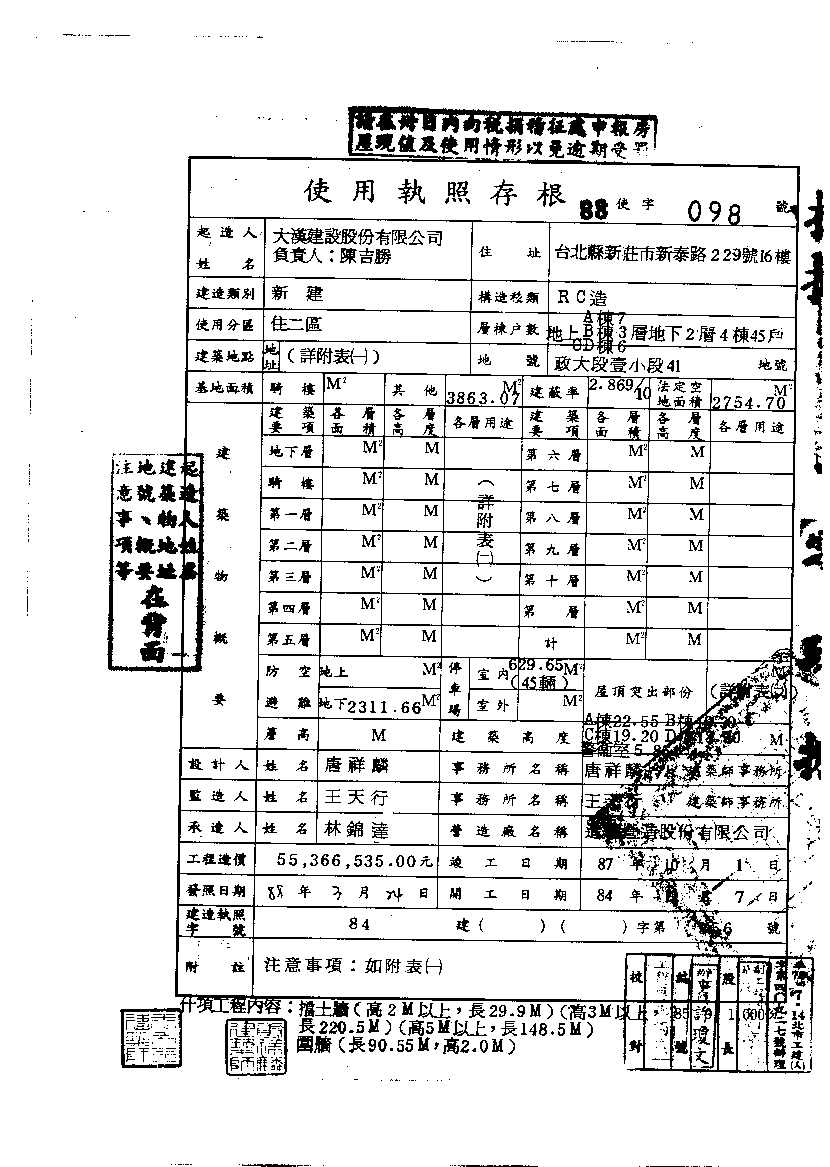 請在卅日內向稅捐稽征處申報房
屋現值及使用情形以免逾期受罰
使用執照存根 88 使字 098 號
起造人姓名 大漢建設股份有限公司 負責人：陳吉勝 住址 台北縣新莊市新泰路229號16樓
建造類別 新建 構造種類 RC造
使用分區 住二區 層棟戶數 地上 A棟7 B棟3 CD棟6 層地下2層4棟45戶
建築地點 地址 (詳附表㈠) 地號 政大段壹小段41 地號
基地面積 騎樓 M² 其他 3863.07 M² 建蔽率 2.869/10 法定空地面積 2754.70 M²
建築要項 各層面積 各層高度 各層用途 建築要項 各層面積 各層高度 各層用途
建築物概要
地下層 M² M 第六層 M² M
騎樓 M² M 第七層 M² M
第一層 M² M 第八層 M² M
第二層 M² M 第九層 M² M
第三層 M² M 第十層 M² M
第四層 M² M 第 層 M² M
第五層 M² M 計 M² M
(詳附表㈡)
防空避難 地上 M² 停車場 室內 629.65 M² (45輛) 屋頂突出部份
地下 2311.66 M² 室外 M²
層高 M 建築高度 A棟22.55 B棟
C棟19.20 M
警衛室5.
設計人 姓名 唐祥麟 事務所名稱 唐祥麟建築師事務所
監造人 姓名 王天行 事務所名稱 王天行 建築師事務所
承造人 姓名 林錦達 營造廠名稱 造股份有限公司
工程造價 55,366,535.00元 竣工日期 87年10月1日
發照日期 88年3月24日 開工日期 84年 7日
建造執照字號 84 建( )( )字第 6 號
附註 注意事項：如附表㈠
什項工程內容：擋土牆(高2M以上，長29.9M)(高3M以上，
長220.5M)(高5M以上，長148.5M)
圍牆(長90.55M，高2.0M)
起造人姓名
建築物地址
地號、概要
注意事項等
在背面
校對
股長